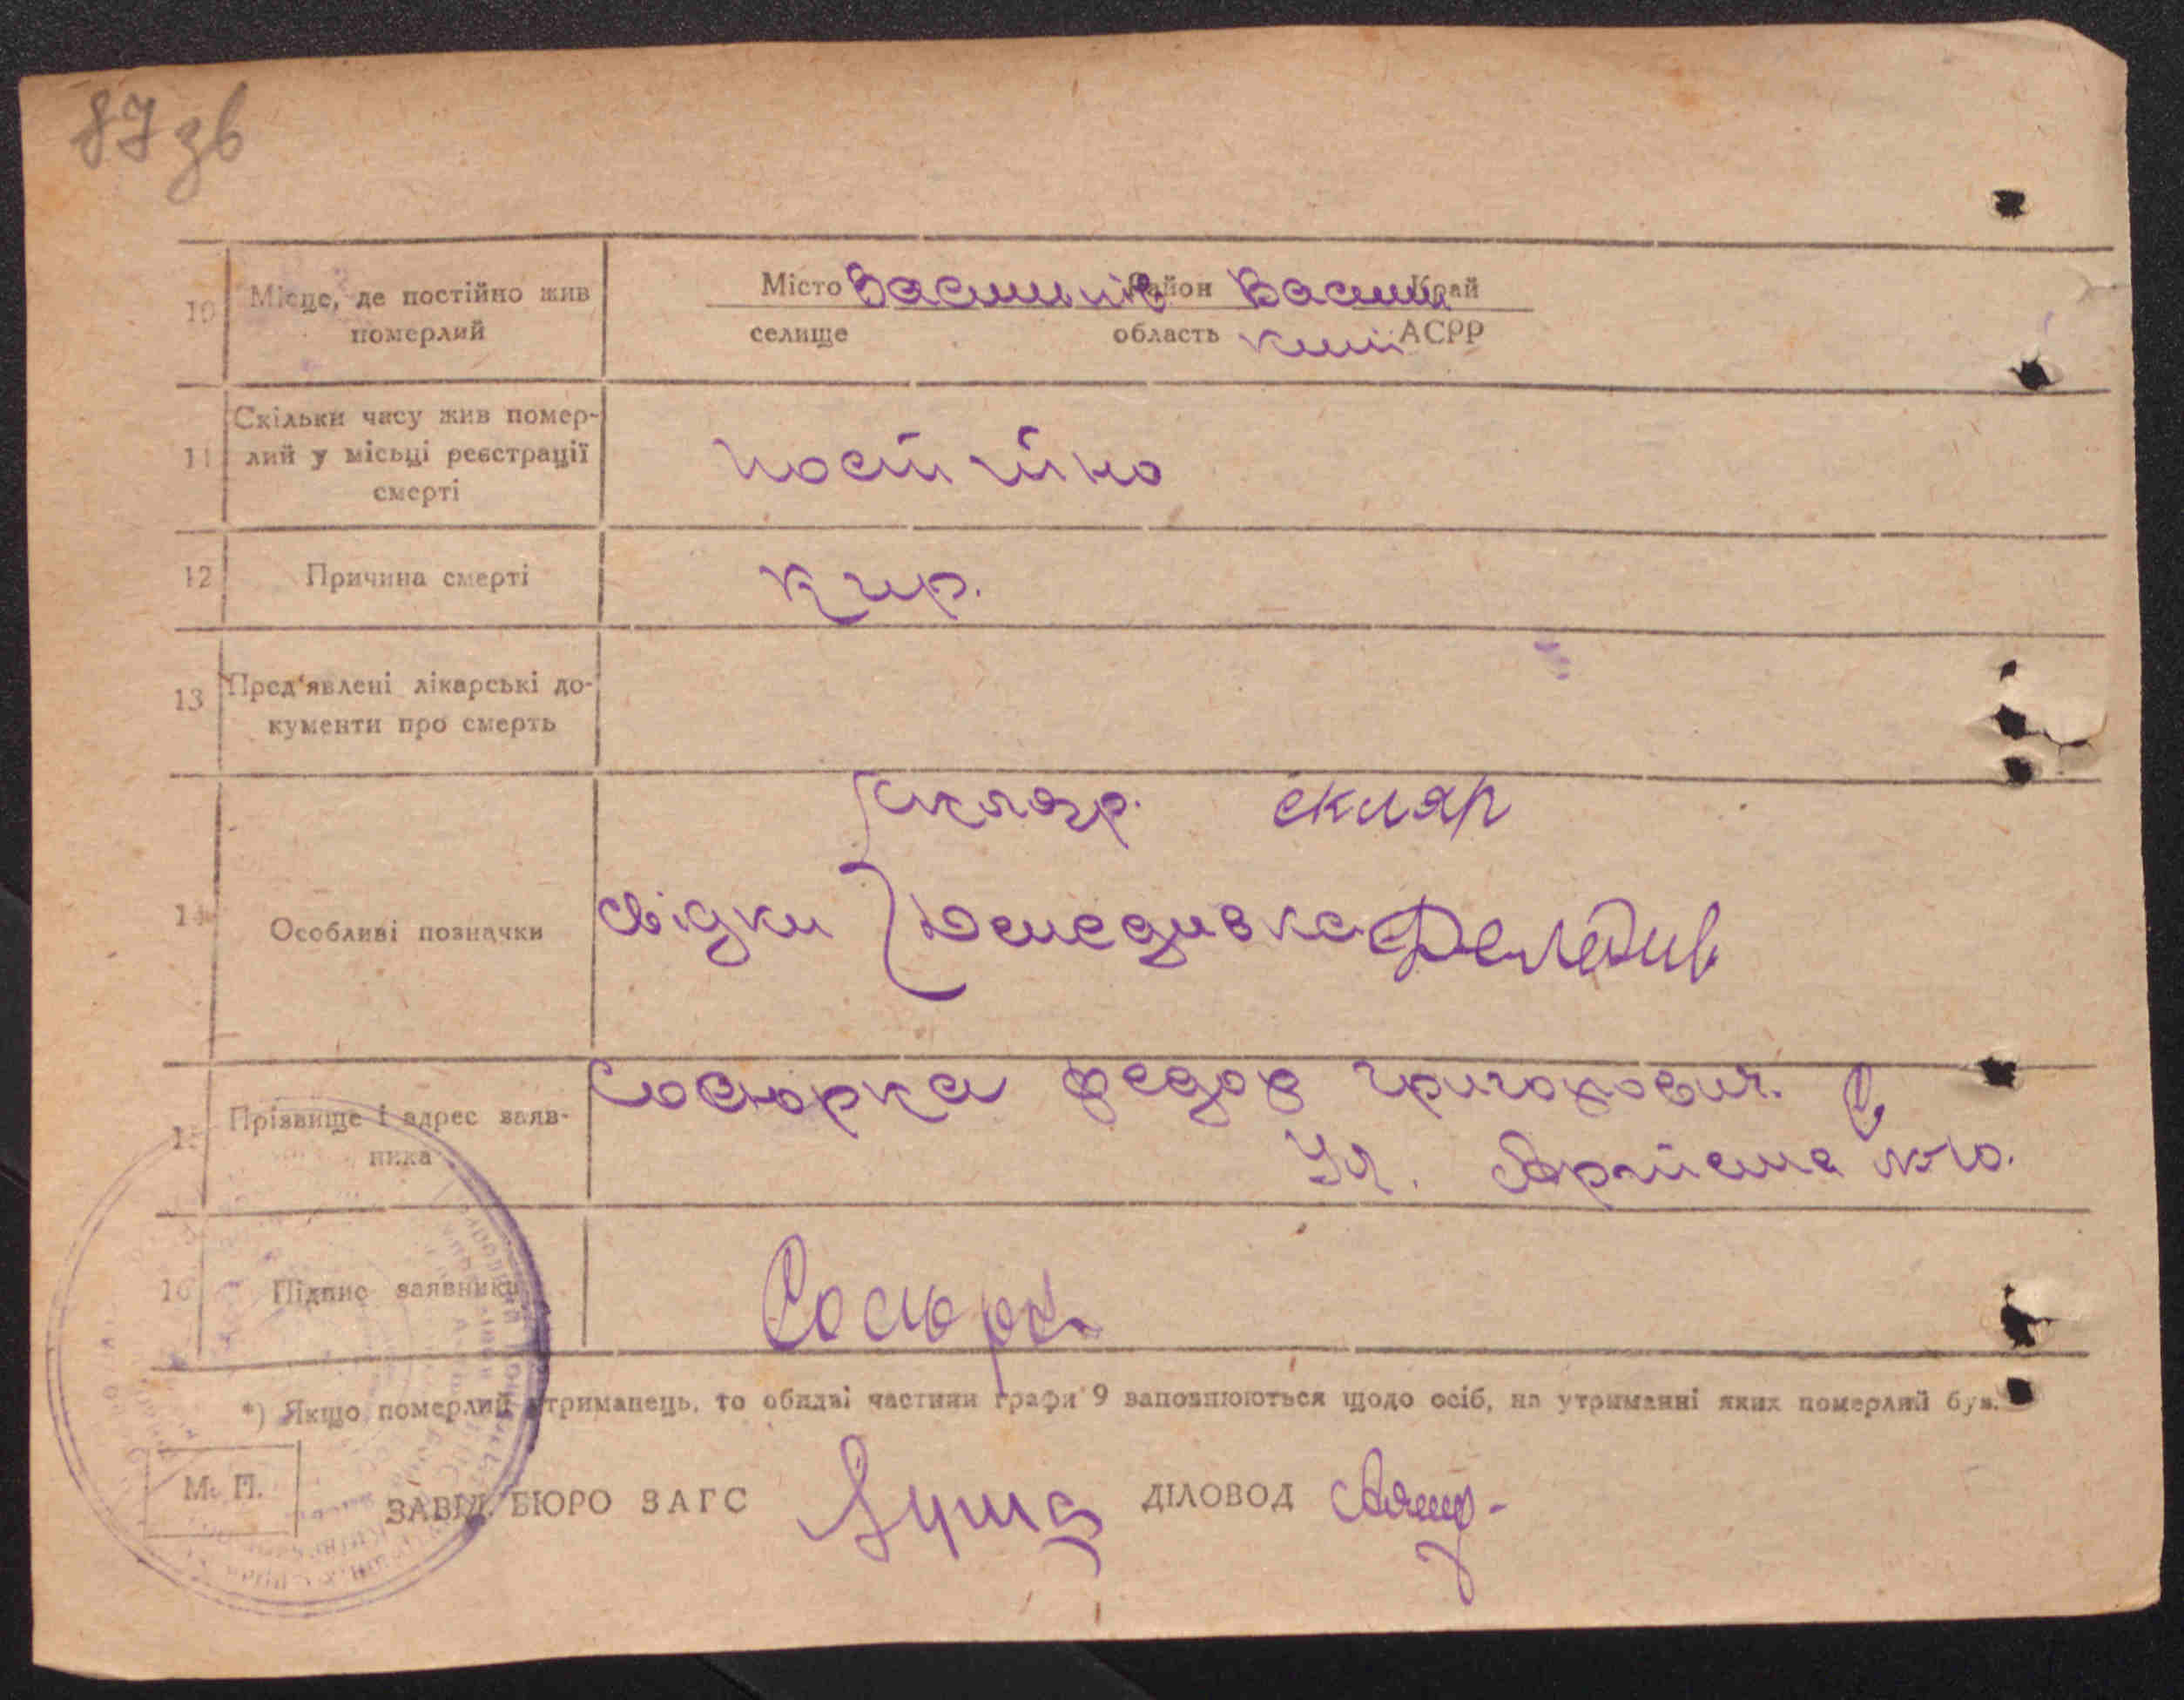 87 зв
10 Місце, де постійно жив померлий
Місто Васильків Район Васильк Край
селище область Киї АСРР
11 Скільки часу жив помер-
лий у місьці реєстрації
смерті
постійно
12 Причина смерті
кир.
13 Пред'явлені лікарські до-
кументи про смерть
скляр. скляр
14 Особливі позначки
свідки
15 Прізвище і адрес заяв-
ника
Сосюрка Федор Григорович.
Ул. №10.
16 Підпис заявника
Сосюрка
*) Якщо померлий утриманець, то обидві частини графи 9 заповнюються щодо осіб, на утриманні яких померлий був.
М. П.
ЗАВІД. БЮРО ЗАГС ДІЛОВОД